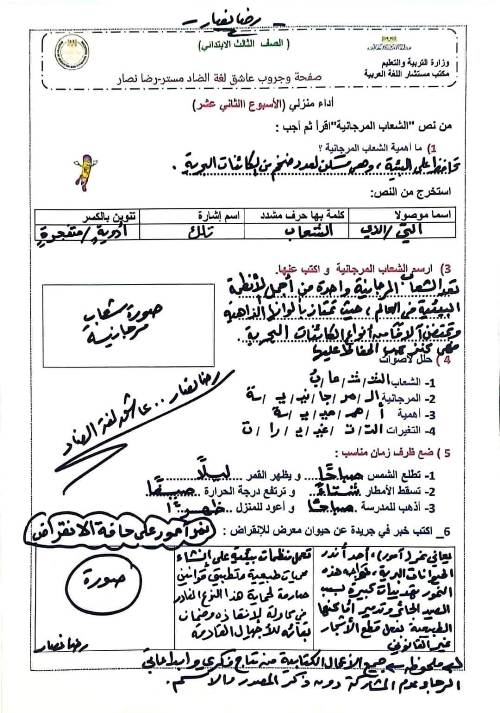 رضا نصار
( الصف الثالث الابتدائي )
وزارة التربية والتعليم
مكتب مستشار اللغة العربية
صفحة وجروب عاشق لغة الضاد مستر-رضا نصار
أداء منزلي (الأسبوع االثاني عشر)
من نص "الشعاب المرجانية"اقرأ ثم أجب :
1) ما أهمية الشعاب المرجانية ؟
تحافظ على البيئة ، وهي سكن لعدد ضخم من الكائنات البحرية .
استخرج من النص:
اسما موصولا كلمة بها حرف مشدد اسم إشارة تنوين بالكسر
التي / الذي الشعاب تلك أدويةٍ / متفجرةٍ
3) ارسم الشعاب المرجانية و اكتب عنها.
صورة شعاب
مرجانية
تعد الشعاب المرجانية واحدة من أجمل الأنظمة
البيئية في العالم ، حيث تمتاز بألوانها الزاهية
وتحتضن آلافًا من أنواع الكائنات البحرية
فهي كنز يجب الحفاظ عليها
4 ) حلل لأصوات
1- الشعاب الشـ / شـ / عا / بُ
2- المرجانية الـ / مر / جا / نيـ / يـ / ـة
3- أهمية أ / همـ / ميـ / يـ / ـة
4- التغيرات التـ / تـ / غيـ / يـ / را / ت
رضا نصار ... عاشق لغة الضاد
5 ) ضع ظرف زمان مناسب :
1- تطلع الشمس صباحًا و يظهر القمر ليلًا
2- تسقط الأمطار شتاءً و ترتفع درجة الحرارة صيفًا
3- أذهب للمدرسة صباحًا و أعود للمنزل ظهرًا
6_ اكتب خبر في جريدة عن حيوان معرض للإنقراض :
نمر آمور على حافة الانقراض
يعاني نمر (آمور) ، أحد أندر
الحيوانات البرية ، تواجه هذه
النمور تحديات كبيرة بسبب
الصيد الجائر وتدمير أماكنها
الطبيعية بفعل قطع الأشجار
غير القانوني
تعمل منظمات بيئية على إنشاء
محميات طبيعية وتطبيق قوانين
صارمة لحماية هذا النوع النادر
في محاولة لإنقاذه وضمان
بقائه للأجيال القادمة
صورة
رضا نصار
ملحوظة جميع الأعمال الكتابية من نتاج فكري وإبداعاتي
الرجاء عدم المشاركة دون ذكر المصدر والاسم .